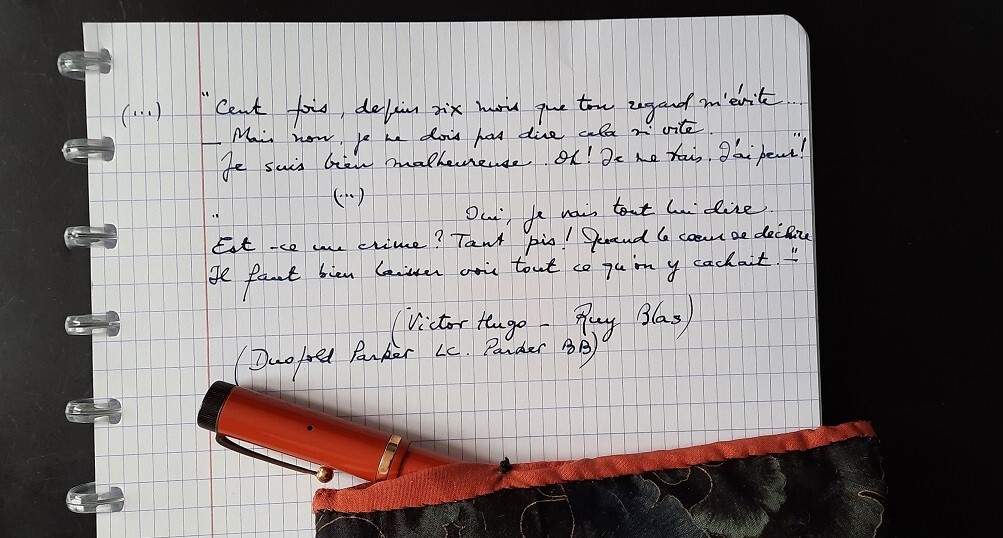 (...) "Cent fois, depuis six mois que ton regard m'évite...
_ Mais non, je ne dois pas dire cela si vite.
Je suis bien malheureuse. Oh! Je me tais. J'ai peur!"
(...)
" Oui, je vais tout lui dire.
Est-ce un crime? Tant pis! Quand le cœur se déchire
Il faut bien laisser voir tout ce qu'on y cachait._"
(Victor Hugo - Ruy Blas)
(Duofold Parker LC. Parker BB)